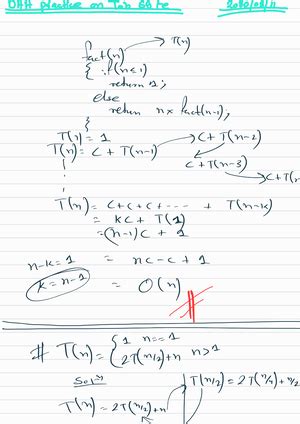 DAA practice on
fact(n) → T(n)
{ if(n≤1)
return 1;
else
return n× fact(n-1);
}
T(1) = 1
T(n) = C + T(n-1) → C+T(n-2)
C+T(n-3)
→ C+T(n
T(n) = C+C+C+---- + T(n-k)
= KC + T(1)
= (n-1)C + 1
n-k=1 = nC-C+1
k=n-1 = O(n)
# T(n) = { 1 n==1
2T(n/2)+n n>1
Sol^n
T(n/2) = 2T(n/4)+n/2
T(n) = 2T(n/2)+n